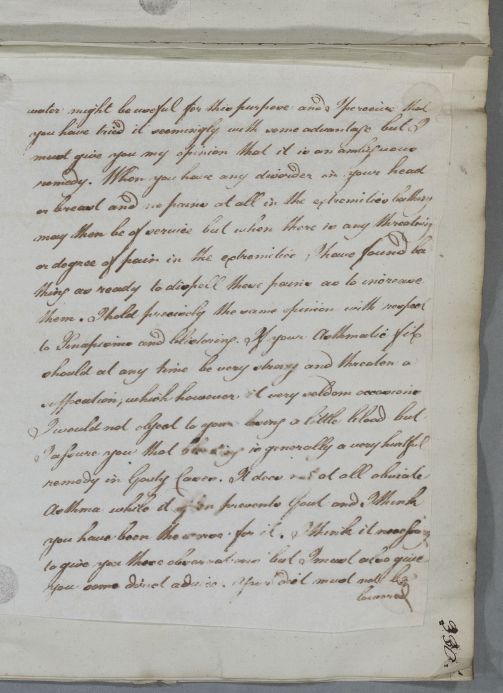 water might be useful for this purpose and I perceive that
you have tried it seemingly with some advantage but I
must give you my opinion that it is an ambiguous
remedy. When you have any disorder in your head
or breast and no pains at all in the extremities bathing
may then be of service but when there is any threatning
or degree of pain in the extremities, I have found ba
thing as ready to dispell these pains as to increase
them. I hold precisely the same opinion with respect
to Sinapisms and blistering. If your Asthmatic fit
should at any time be very strong and threaten a
suffocation, which however it very seldom occasions
I would not object to your losing a little blood but
I assure you that bleeding is generally a very hurtful
remedy in Gouty Cases. It does not at all obviate
Asthma while it often prevents Gout and I think
you have been the worse for it. I think it necessary
to give you these observations but I must also give
you some direct advice. Your diet must not be